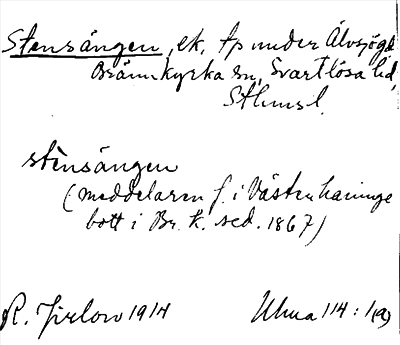 Stensängen, ek, tp under Älvsjögd
Brännkyrka sn, Svartlösa hd,
Sthmsl.
stènsängen
(meddelaren f. i Västerhaninge
bott i Br. k. sed. 1867)
R. Jirlow 1914 Ulma 114:1(9)